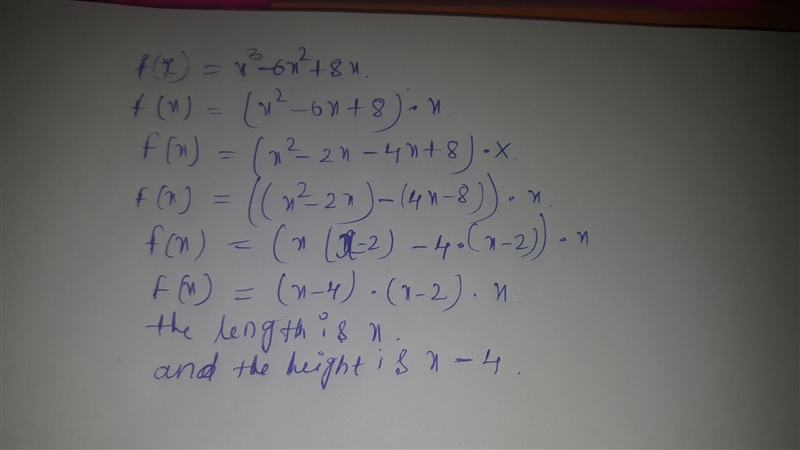 f(x) = x³-6x²+8x.
f(x) = (x²-6x+8)·x.
f(x) = (x²-2x-4x+8)·x.
f(x) = ((x²-2x)-(4x-8))·x.
f(x) = (x(x-2) -4·(x-2))·x
f(x) = (x-4)·(x-2)·x.
the length is x.
and the height is x-4.